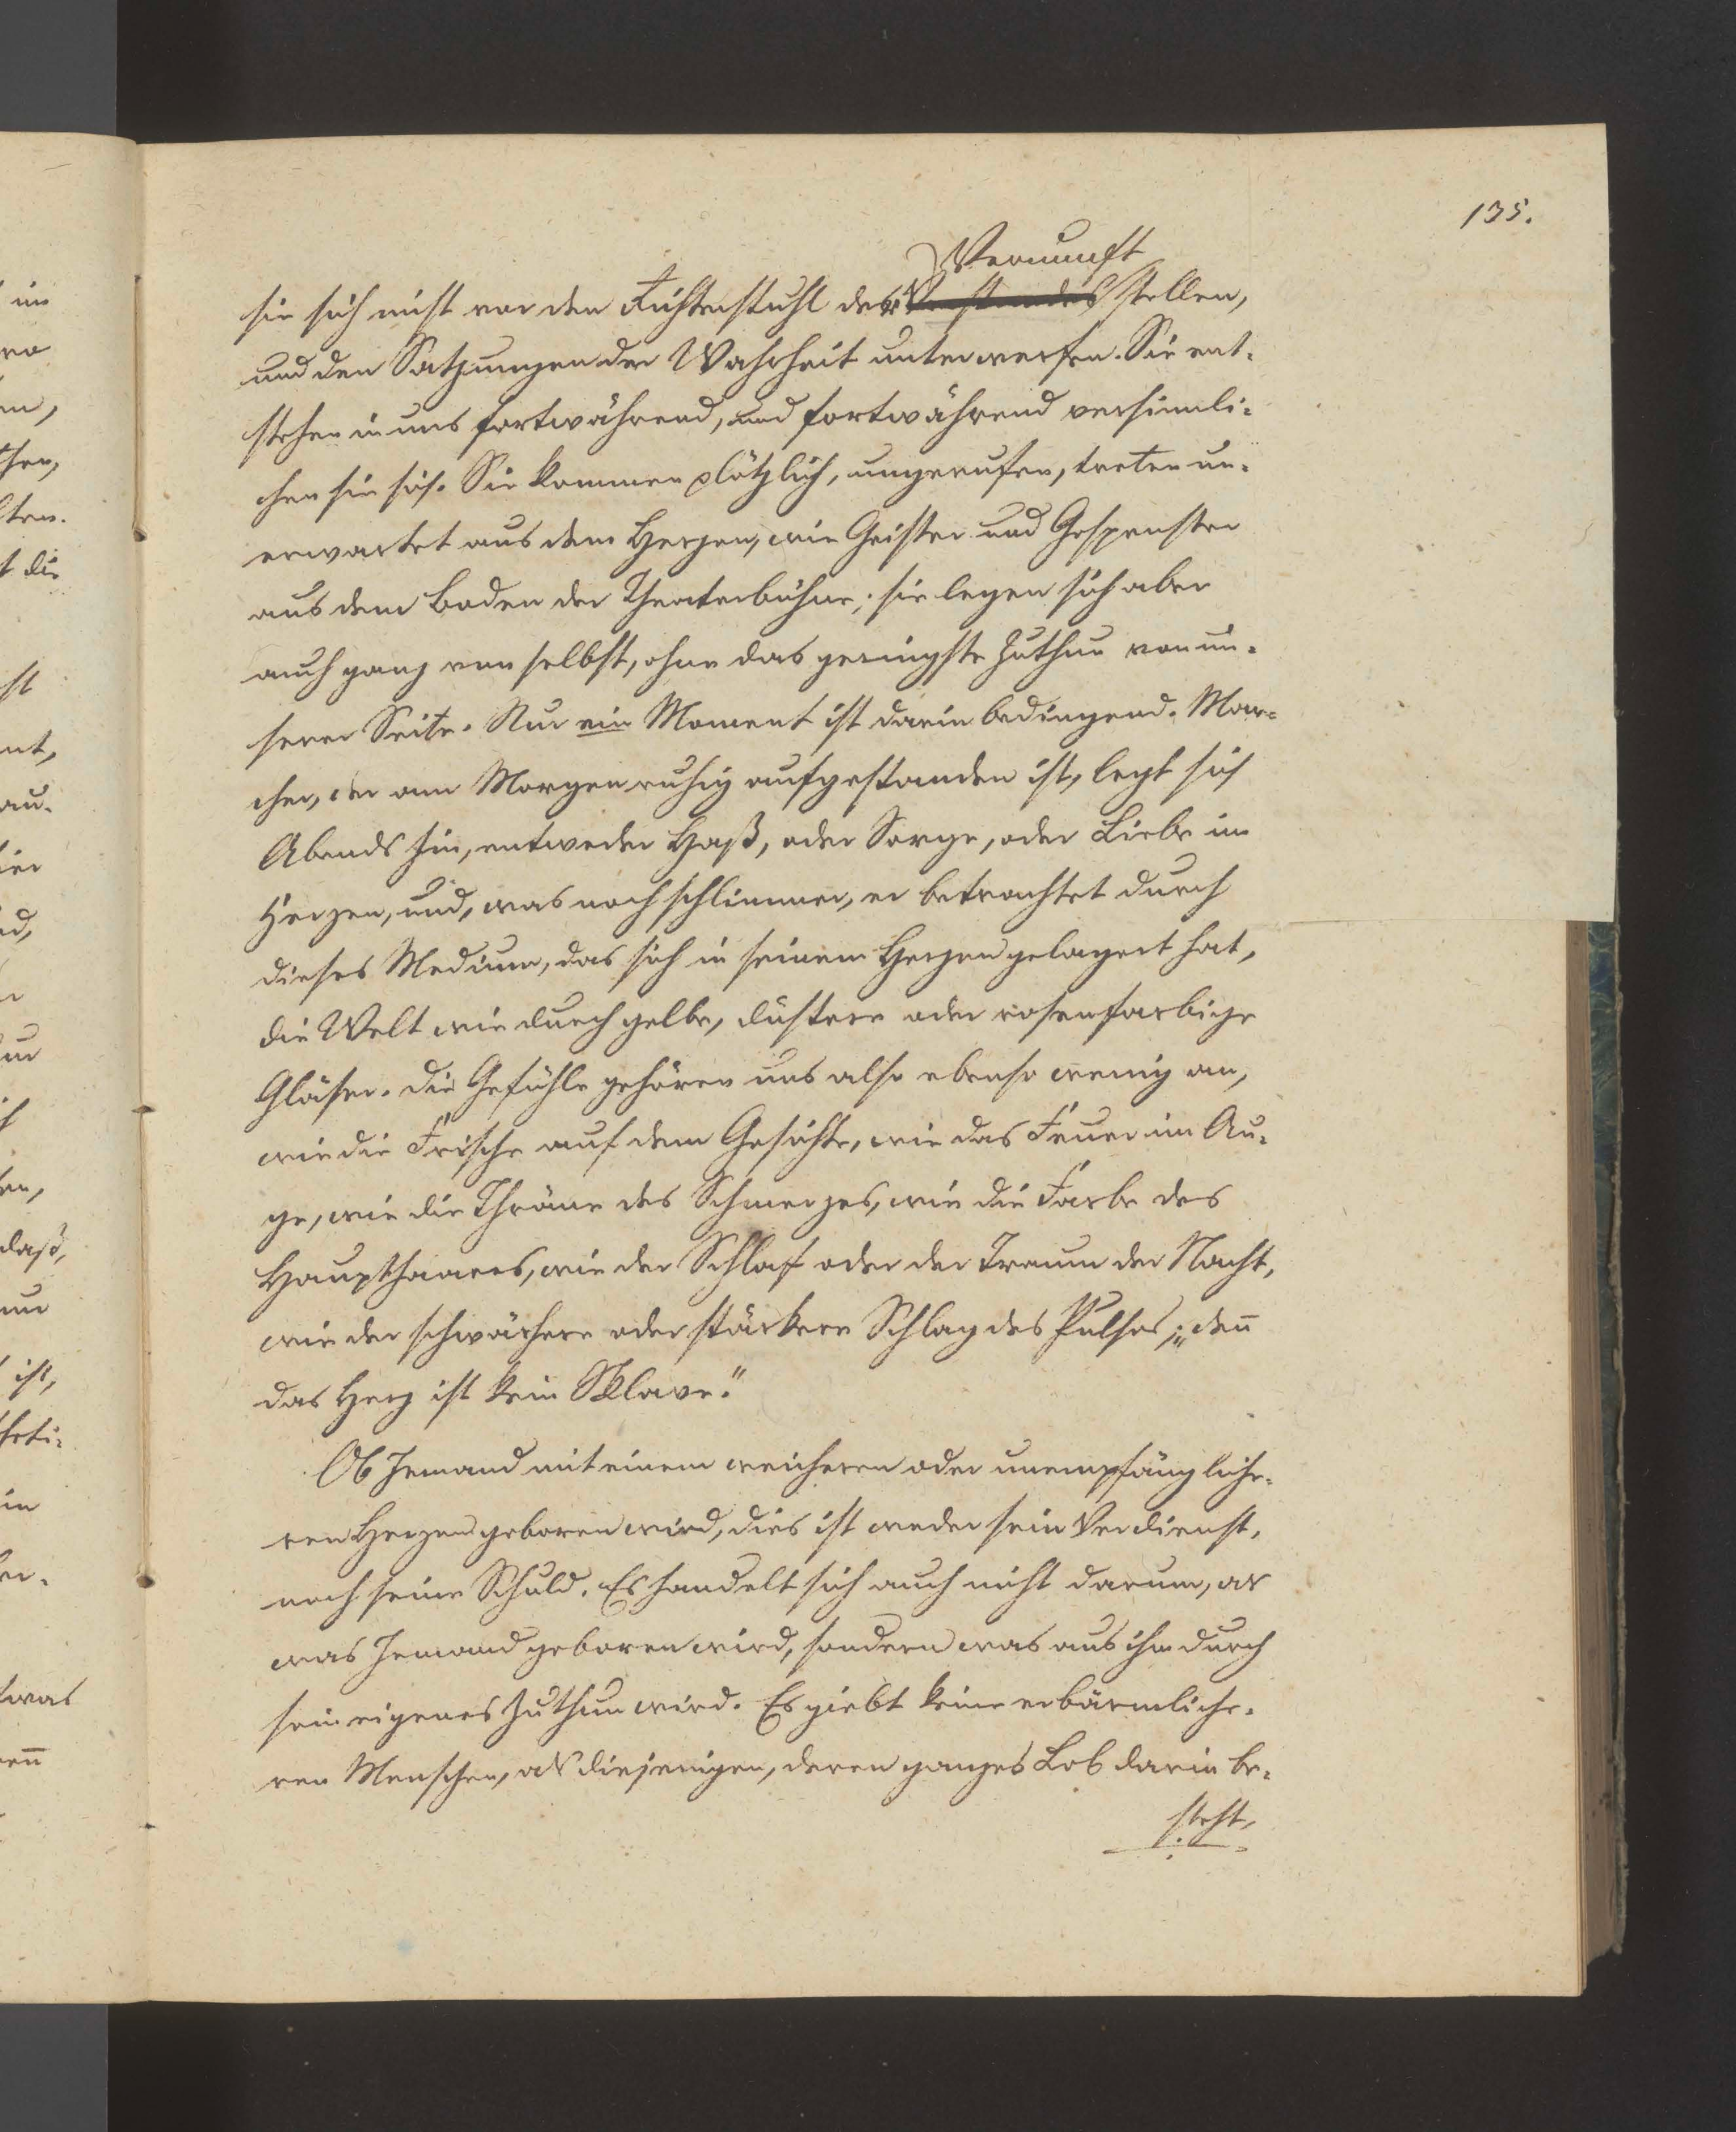 135.
Vernunft
sie sich nicht vor den Richterstuhl der Verstandes stellen,
und den Satzungen der Wahrheit unterwerfen. Sie ent-
stehen in uns fortwährend, und fortwährend versinnli-
chen sie sich. Sie kommen plötzlich, ungerufen, treten un-
erwartet aus dem Herzen, wie Geister und Gespenster
aus dem Boden der Theaterbühne; sie legen sich aber
auch ganz von selbst, ohne das geringste Zuthun von un-
serer Seite. Nur ein Moment ist darin bedingend. Man-
cher, der am Morgen ruhig aufgestanden ist, legt sich
Abends hin, entweder Haß, oder Sorge, oder Liebe im
Herzen, und, was noch schlimmer, er betrachtet durch
dieses Medium, das sich in seinem Herzen gelagert hat,
die Welt wie durch gelbe, düstere oder rosenfarbige
Gläser. Die Gefühle gehören uns also ebenso wenig an,
wie die Frische auf dem Gesichte, wie das Feuer im Au-
ge, wie die Thräne des Schmerzes, wie die Farbe des
Haupthaares, wie der Schlaf oder der Traum der Nacht,
wie der schwächere oder stärkere Schlag des Pulses; „den̅
das Herz ist kein Sklave."
Ob Jemand mit einem weicheren oder unempfängliche-
ren Herzen geboren wird, dies ist weder sein Verdienst,
noch seine Schuld. Es handelt sich auch nicht darum, als
was Jemand geboren wird, sondern was aus ihm durch
sein eigenes Zuthun wird. Es giebt keine erbärmliche-
ren Menschen, als diejenigen, deren ganzes Lob darin be-
steht,